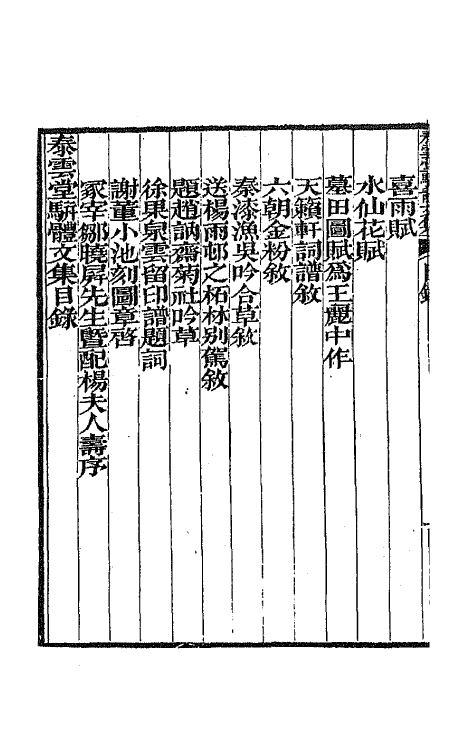 喜雨賦
水仙花賦
墓田圖賦爲王麗中作
天籟軒詞譜敘
六朝金粉敘
秦漆漁吳吟合草敘
送楊雨邨之柘林別駕敘
題趙訥齋菊社吟草
徐果泉雲留印譜題詞
謝童小池刻圖章啓
冢宰鄒曉屏先生曁配楊夫人壽序
泰雲堂駢體文集目錄